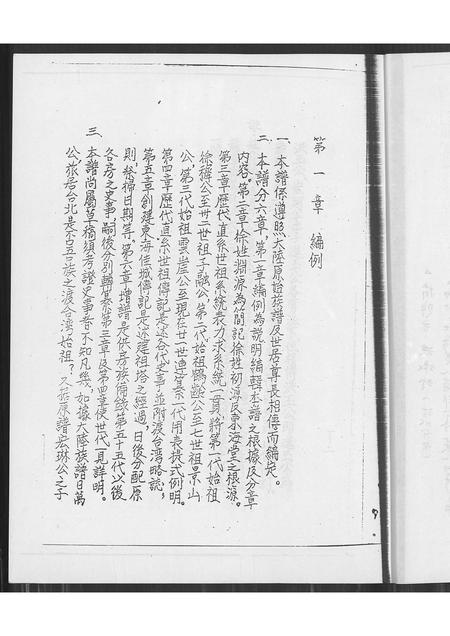 第一章 編例
一、本譜係遵照大陸原誼族譜及世居尊長相傳而編定。
二、本譜分六章，第一章編例為說明編輯本譜之根據及分章
內容。第二章徐姓淵源為簡記徐姓初淳及東海堂之根源。
第三章歷代直系世祖系統表力求系統一貫，將第一代始祖
徐稱公至卅二世祖子融公，第二代始祖鶴公至七世祖景山
公，第三代始祖雲崖公至現在廿世連第一代用表提式例明。
第四章歷代直系世祖傳記是述各代史事並附渡台灣略誌，
第五章創建東海佳城傳記是述建祖塔之經過，日後分配原
則，祭掃日期等。第六章增譜是供各族備錄第五十五代以後
各房之史事，嗣後分別輯集第三章及第四章使世代一見詳明。
三、本譜尚屬草橋須考證史事者不知凡幾，如據大陸族譜日萬
公，旅居台北是否吾族之渡台灣始祖？又於原譜宏琳公之子